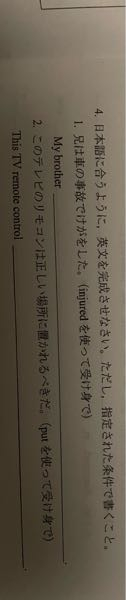 4. 日本語に合うように，英文を完成させなさい。ただし，指定された条件で書くこと。
1. 兄は車の事故でけがをした。(injured を使って受け身で)
My brother ______________________.
2. このテレビのリモコンは正しい場所に置かれるべきだ。(put を使って受け身で)
This TV remote control ______________________.